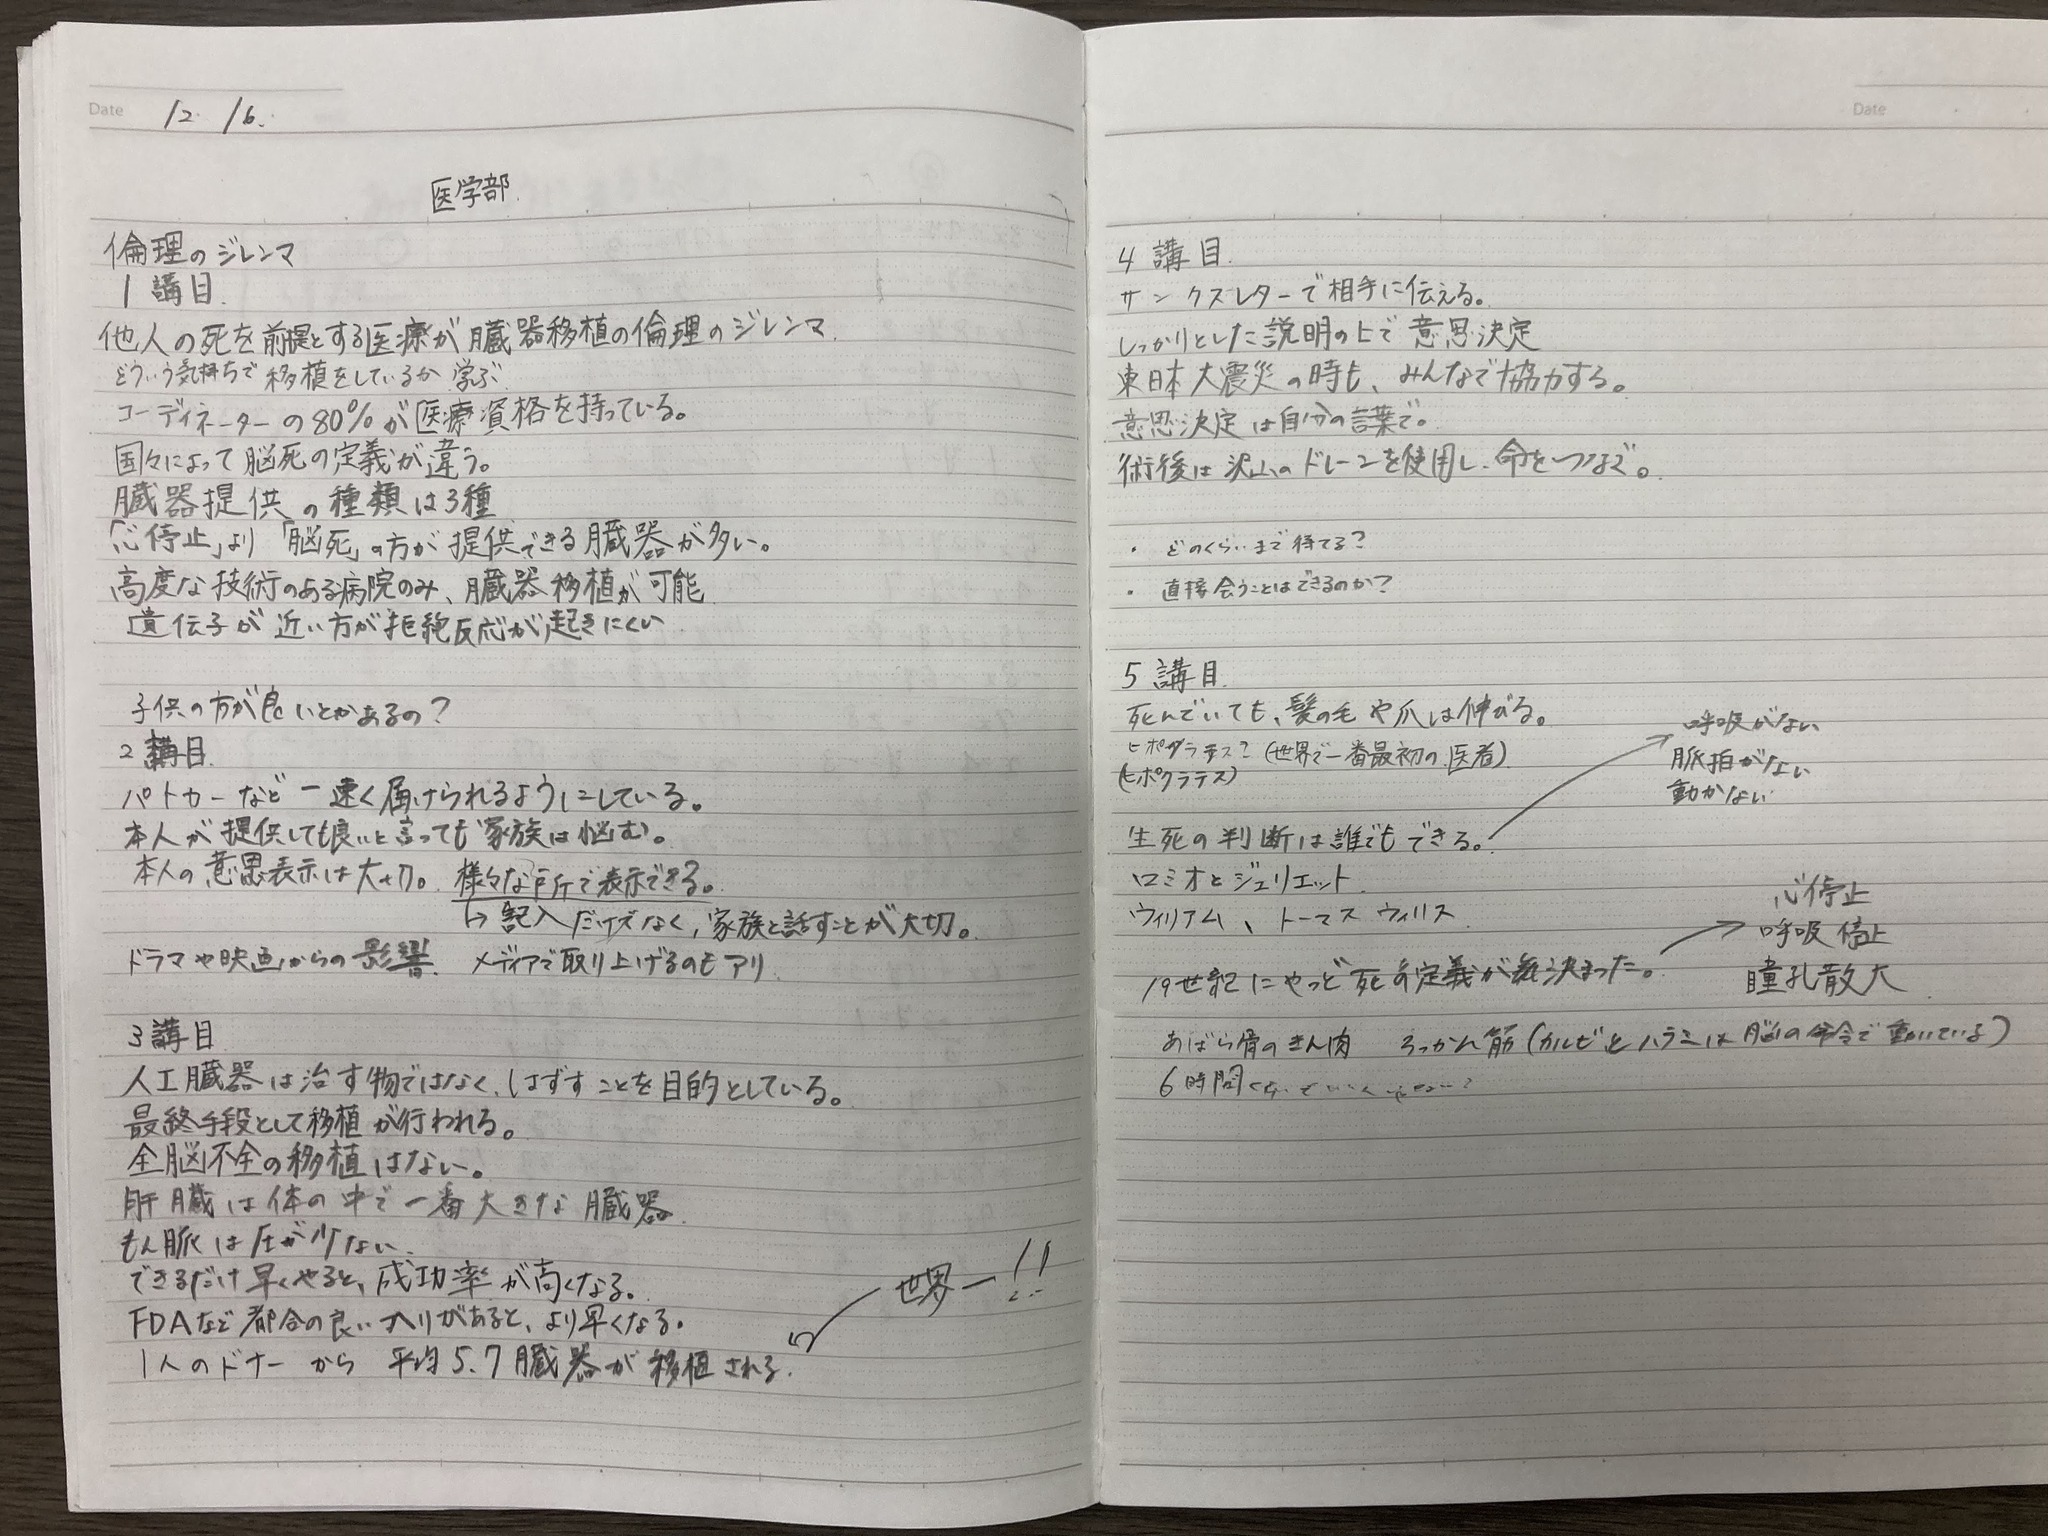 Date 12. 16.
医学部
倫理のジレンマ
1講目
他人の死を前提とする医療が臓器移植の倫理のジレンマ
どういう気持ちで移植をしているか学ぶ
コーディネーターの80%が医療資格を持っている。
国々によって脳死の定義が違う。
臓器提供の種類は3種
「心停止」より「脳死」の方が提供できる臓器が多い。
高度な技術のある病院のみ、臓器移植が可能
遺伝子が近い方が拒絶反応が起きにくい
子供の方が良いとかあるの?
2講目
パトカーなど一速く届けられるようにしている。
本人が提供しても良いと言っても家族は悩む。
本人の意思表示は大切。様々な所で表示できる。
↳記入だけでなく、家族と話すことが大切。
ドラマや映画からの影響 メディアで取り上げるのもアリ
3講目
人工臓器は治す物ではなく、はずすことを目的としている。
最終手段として移植が行われる。
全脳不全の移植はない。
肝臓は体の中で一番大きな臓器
もん脈は圧が少ない
できるだけ早くやると、成功率が高くなる。
FDAなど都合の良い入りがあると、より早くなる。
世界一!!
1人のドナーから平均5.7臓器が移植される
Date
4講目
サンクスレターで相手に伝える。
しっかりとした説明の上で意思決定
東日本大震災の時も、みんなで協力する。
意思決定は自分の言葉で。
術後は沢山のドレーンを使用し、命をつなぐ。
・どのくらいまで待てる?
・直接会うことはできるのか?
5講目
死んでいても、髪の毛や爪は伸びる。
ヒポグラテス?(世界で一番最初の医者)
(ヒポクラテス)
呼吸がない
脈拍がない
動かない
生死の判断は誰でもできる。
ロミオとジュリエット
ウィリアム、トーマスウィリス
心停止
呼吸停止
瞳孔散大
19世紀にやっと死の定義が決まった。
あばら骨のきん肉 ろっかん筋(カルビとハラミは脳の命令で動いている)
6時間